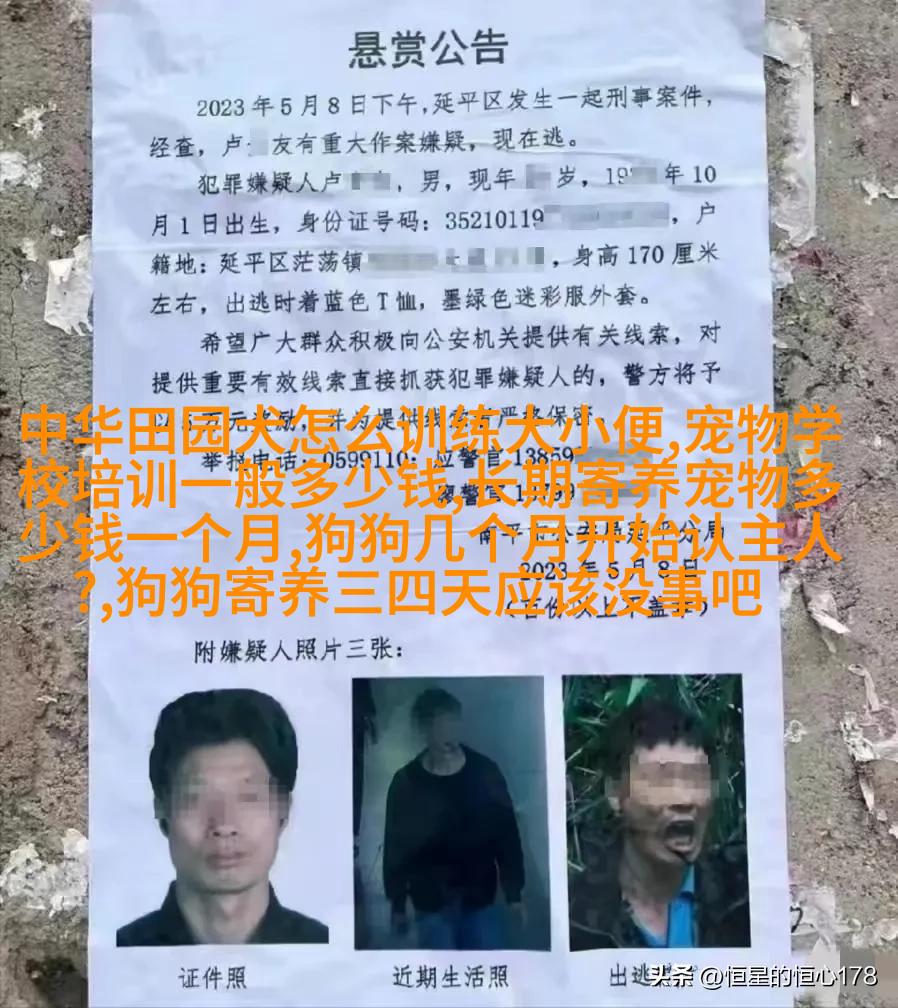 悬赏公告
2023年5月8日下午,延平区发生一起刑事案件,
经查,卢 友有重大作案嫌疑,现在逃。
犯罪嫌疑人卢 ,男,现年 岁,19 年10
月1日出生,身份证号码:35210119 ,户
籍地:延平区茫荡镇 ,身高170厘米
左右,出逃时着蓝色T恤,墨绿色迷彩服外套。
希望广大群众积极向公安机关提供有关线索,对
提供重要有效线索直接抓获犯罪嫌疑人的,警方将予
中华田园犬怎么训练大小便,宠物学
举报电话:0599110;应警官13859
校培训一般多少钱,长期寄养宠物多
少钱一个月,狗狗几个月开始认主人
2023年5月8日
?,狗狗寄养三四天应该没事吧
附嫌疑人照片三张:
证件照 近期生活照 出逃
头条 @恒星的恒心178